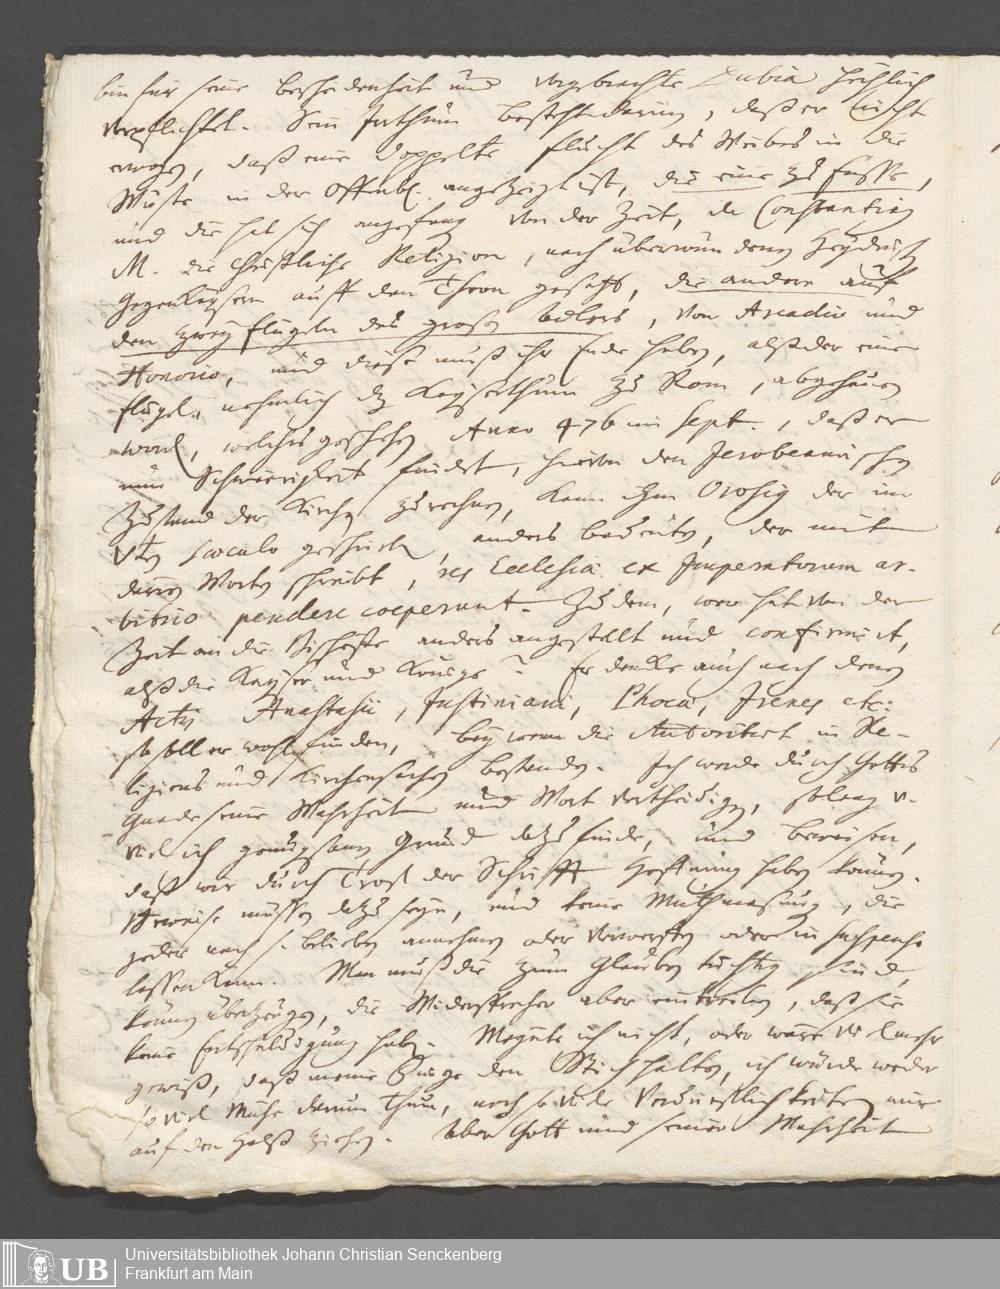 bin für seine bescheidenheit und vorgebrachte Dubia höchlich
verpflichtet. Sein Irthum bestehet darinn, daß er nicht
erwogen, daß eine doppelte flucht des Weibes in die
Wüste in der Offenb. angezeigt ist, die eine zu fusse,
und die hat sich angefangen von der Zeit, da Constantin
M. die Christliche Religion, nach überwundenen Heydnisch
Gegenkaysern auff den Thron gesetzt, die andere auf
den zwey flügeln des grosen Adlers, von Arcadio und
Honorio, und diese muß ihr Ende haben, alß der eine
flügel, nehmlich dz Kayserthum zu Rom, abgehauen
word, welches geschehen Anno 476 im Sept., daß er
nun Schwierigkeit findet, hievon den Jerobeamischen
Zustand der Kirchen zu rechnen, kann ihm Orosig der im
Vten saeculo geschrieb, anders bedeuten, der mit
dürren Worten schreibt, res Ecclesiae ex Imperatorum ar-
bitrio pendere coeperunt. Zu dem, wer hat von der
Zeit an die Bischöffe anders angestellt und confirmirt,
alß die Kayser und Könige? Er dencke auch nach denen
Actis Anastasii, Justiniani, Phocae, Irenes etc:
so soll er wohl finden, bey wem die Autorität in Re-
ligions und Kirchensachen bestanden. Ich werde durch Gottes
Gnade seine Wahrheit und Wort vertheidigen, solang u.
viel ich genugsamen Grund dazu finde, und beweisen,
daß wir durch Trost der Schrifft Hoffnung haben können.
Beweise müssen dazu seyn, und keine Muthmasung, die
jeder nach s. belieben annehmen oder verwerffen oder in suspenso
lassen kann. Man muß die zum Glauben tüchtig sind,
können überzeugen, die Widersprecher aber eintreiben, daß sie
keine Entschuldigung haben. Meynte ich nicht, oder wäre vielmehr
gewiß, daß meine Dinge den Stich halten, ich würde weder
so viel Mühe darum thun, noch so viele Verdrieslichkeiten mir
auf den Halß ziehen. Aber Gott und seiner Wahrheit
UB
Universitätsbibliothek Johann Christian Senckenberg
Frankfurt am Main